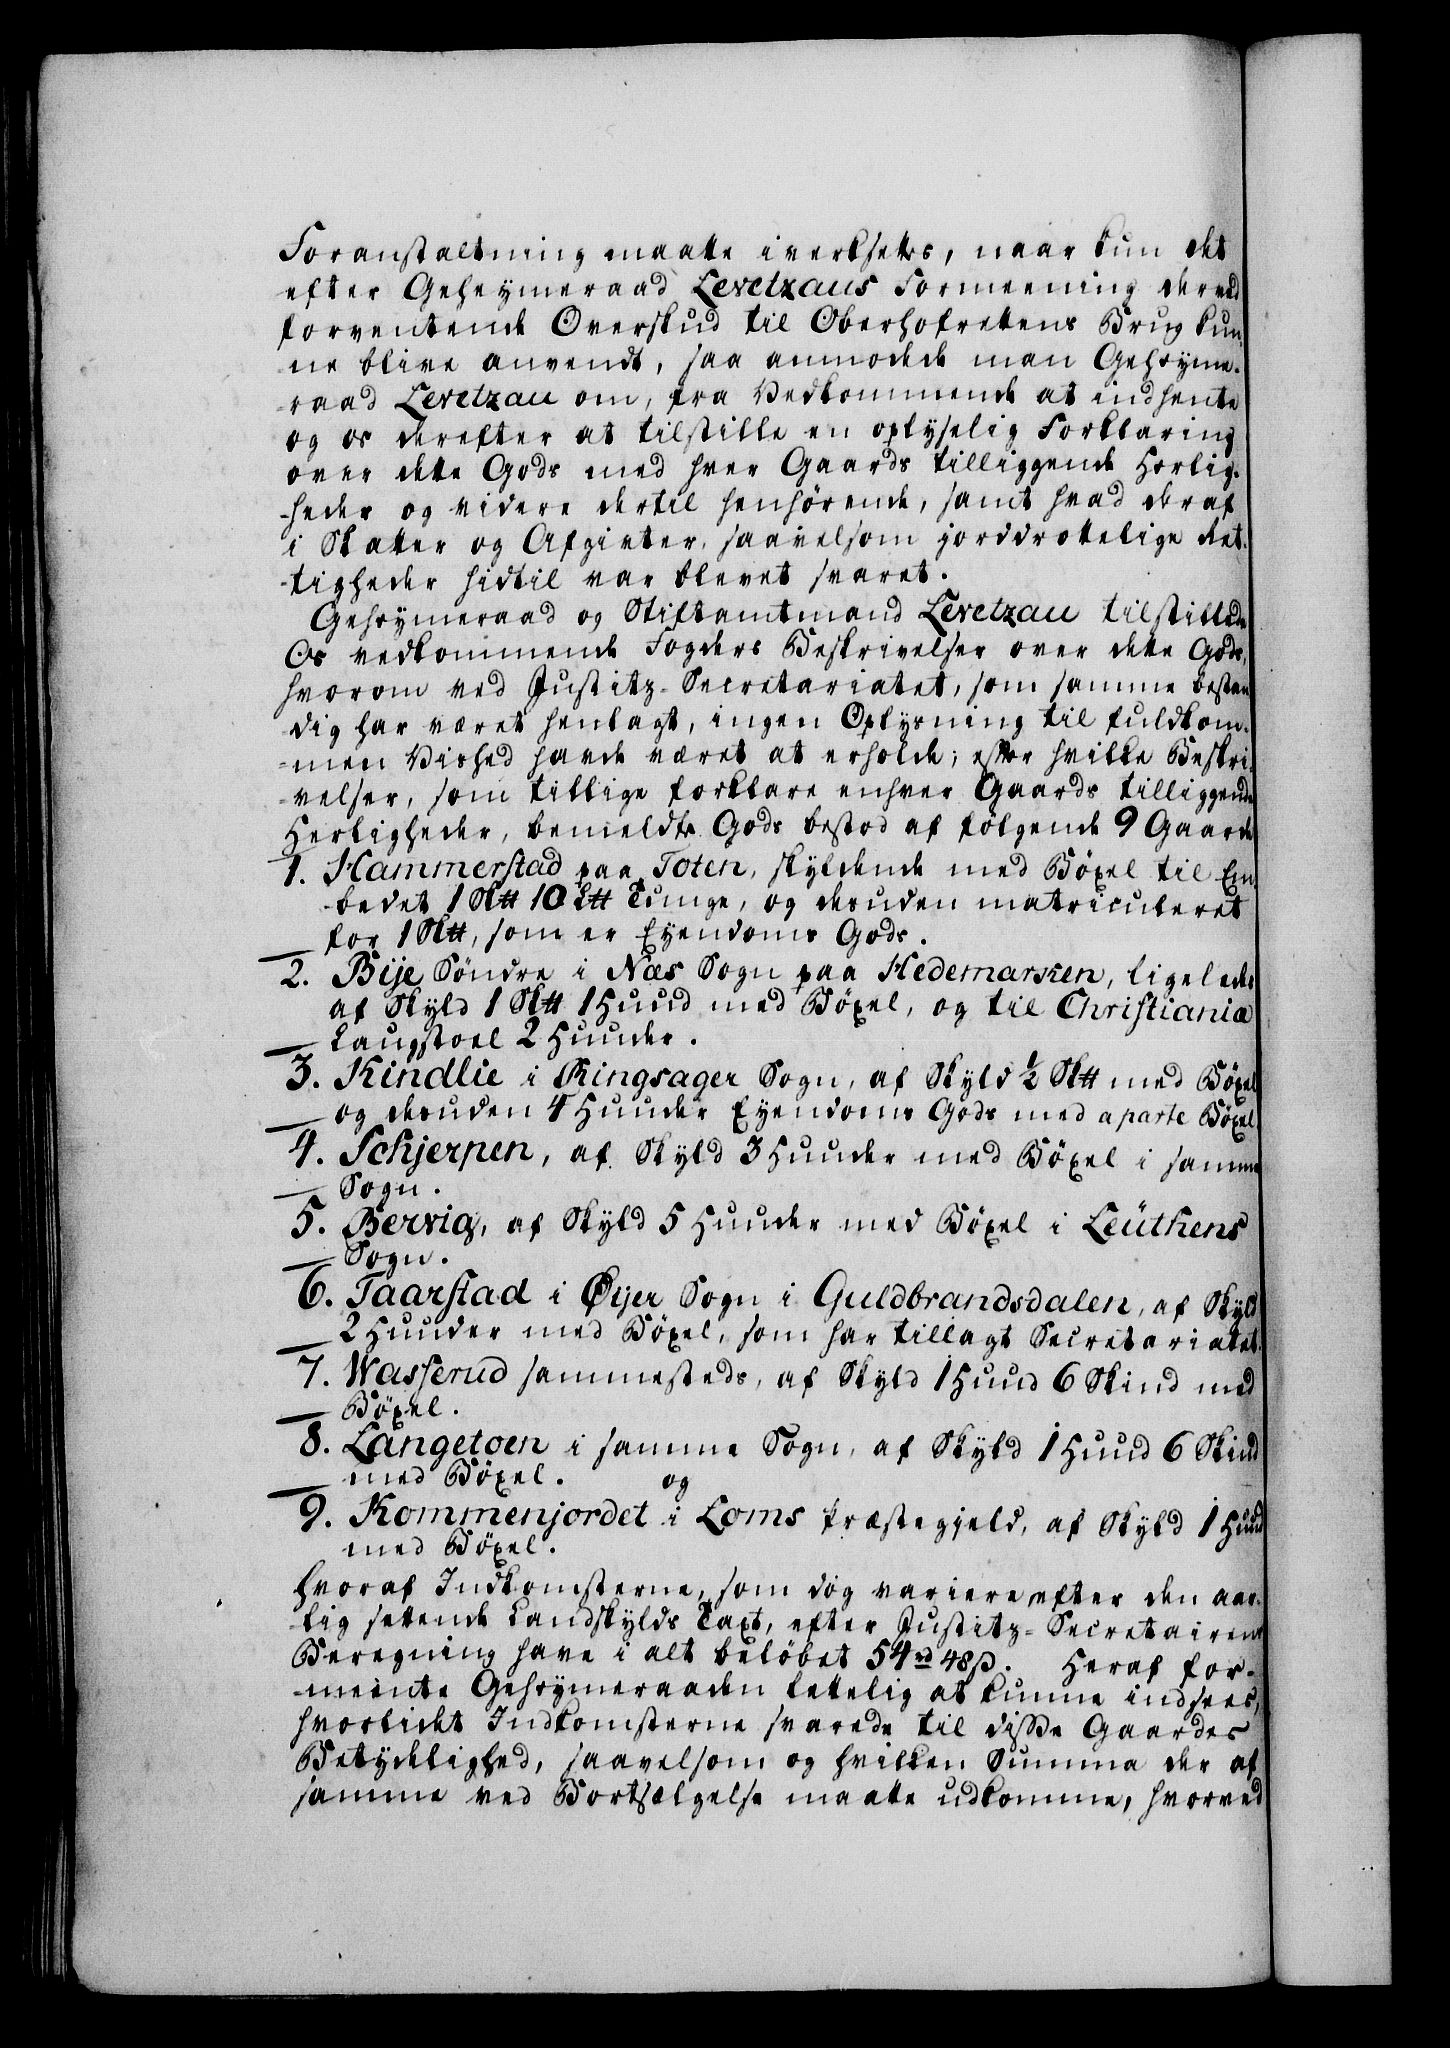 Foranstaltning maatte iverksettes, naar kun det
efter Geheymeraad Levetzaus Formeening derved
forventende Overskud til Oberhofrettens Brug kun-
ne blive anvendt, saa anmodede man Geheyme-
raad Levetzau om, fra Vedkommende at indhente
og os derefter at tilstille en oplyselig Forklaring
over dette Gods med hver Gaards tilliggende Herlig-
heder og videre dertil henhörende, samt hvad deraf
i Skatter og Afgivter, saavelsom jorddrottelige Ret-
tigheder hidtil var blevet svaret.
Geheymeraad og Stiftamtmand Levetzau tilstillede
Os vedkommende Fogders Beskrivelser over dette Gods,
hvorom ved Justitz-Secretariatet, som samme bestan-
dig har været henlagt, ingen Oplysning til fuldkom-
men Vished havde været at erholde; efter hvilke Beskri-
velser, som tillige forklare enhver Gaards tilliggende
Herligheder, bemeldte Gods bestod af følgende 9 Gaarde
1. Hammerstad paa Toten, skyldende med Böxel til Em-
bedet 1 Sk℔ 10 L℔ Tunge, og desuden matriculeret
for 1 Sk℔, som er Eyendoms Gods.
2. Bije Söndre i Næs Sogn paa Hedemarken, ligeledes
af Skyld 1 Sk℔ 1 Huud med Böxel, og til Christiania
Laugstoel 2 Huuder.
3. Kindlie i Ringsager Sogn, af Skyld ½ Sk℔ med Böxel
og desuden 4 Huuder Eyendoms Gods med aparte Böxel.
4. Schjerpen, af Skyld 3 Huuder med Böxel i samme
Sogn.
5. Bervig, af Skyld 5 Huuder med Böxel i Leüthens
Sogn.
6. Taarstad i Øijer Sogn i Guldbrandsdalen, af Skyld
2 Huuder med Böxel, som har tillagt Secretariatet.
7. Wasserud sammesteds, af Skyld 1 Huud 6 Skind med
Böxel.
8. Langetoen i samme Sogn, af Skyld 1 Huud 6 Skind
med Böxel. og
9. Kommenjordet i Loms Præstegjeld, af Skyld 1 Huud
med Böxel.
hvoraf Indkomsterne, som dog variere efter den aar-
lig settende Landskylds Taxt, efter Justitz-Secretairens
Beregning have i alt belöbet 54 rd 48 ß. Heraf for-
meente Geheymeraaden lettelig at kunne indsees,
hvorlidet Indkomsterne svarede til disse Gaardes
Betydelighed, saavelsom og hvilken Summa der af
samme ved Bortsælgelse maatte udkomme, hvorved